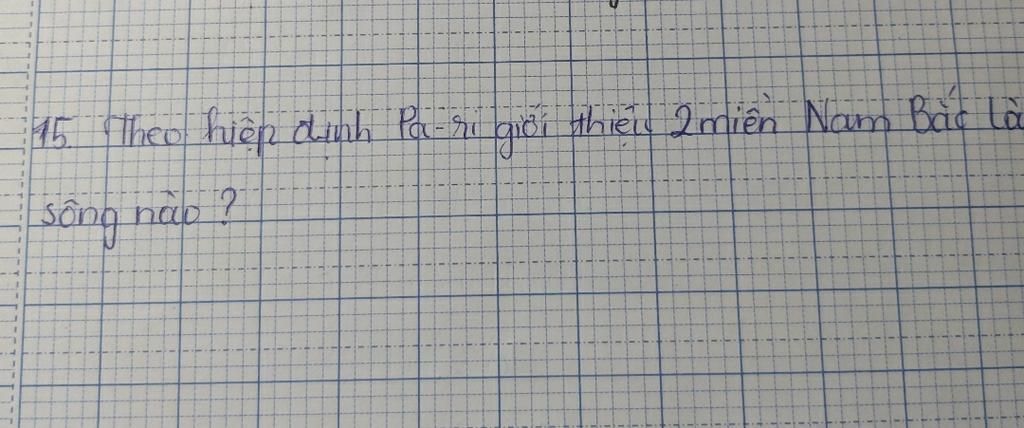 15. Theo hiệp định Pa-ri giới thiệu 2 miền Nam Bắc Là
sông nào?